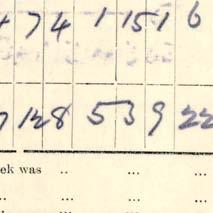 74 1 151 6
128 539 22
ek was .. ... ...
.. ... ...